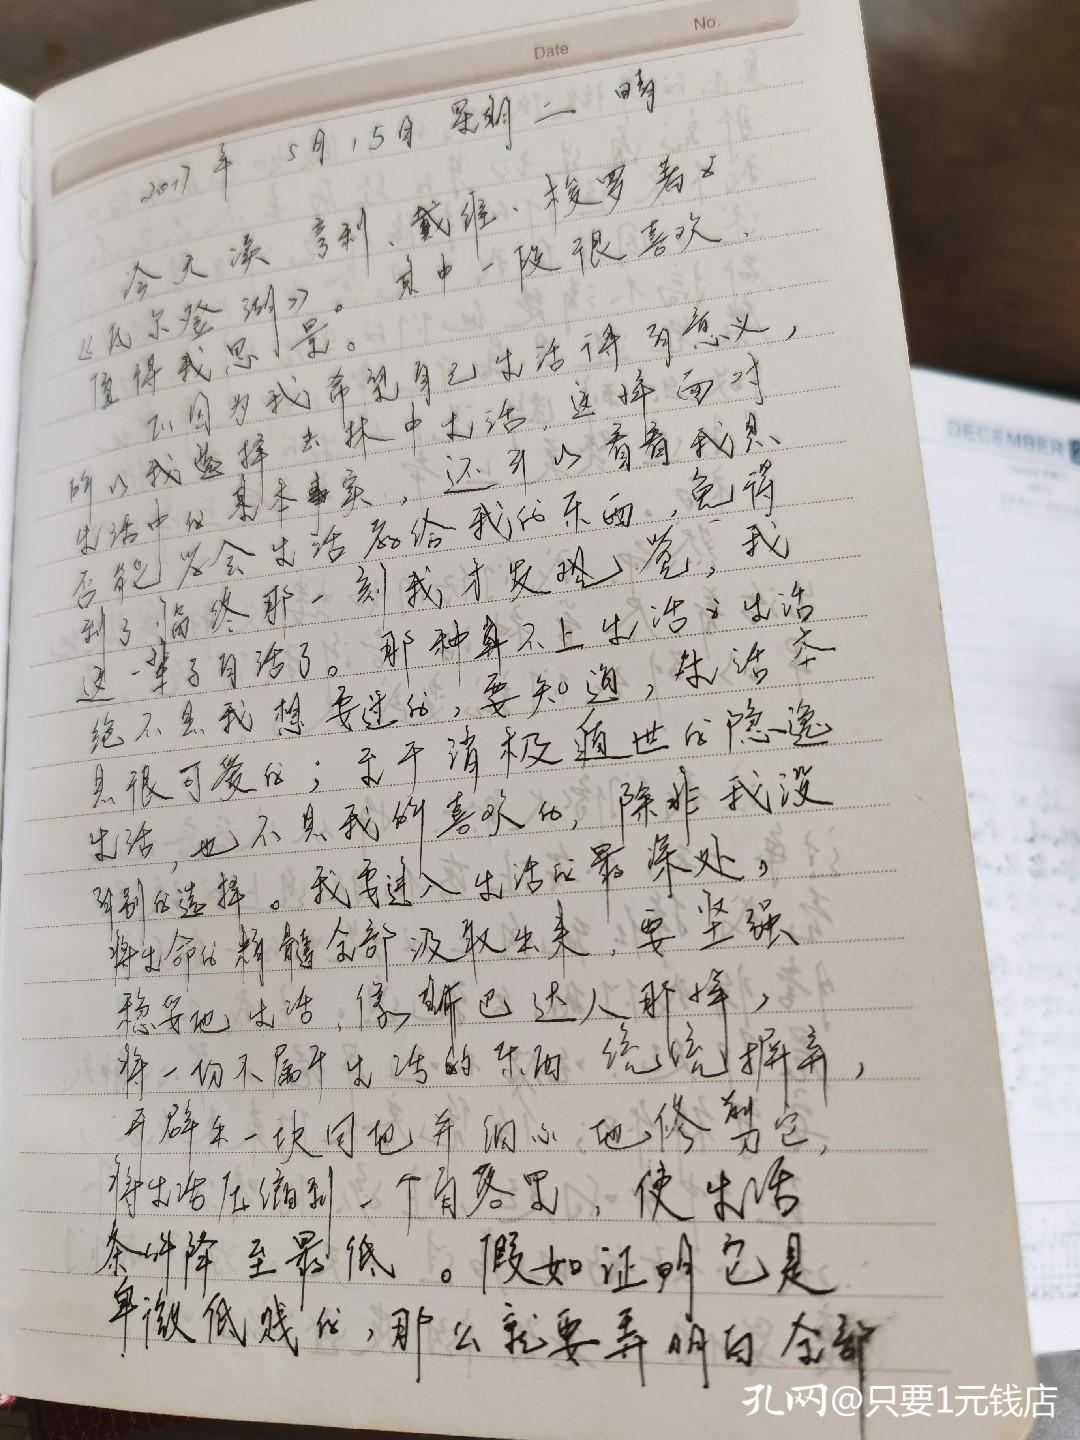 No.
Date
2017年 5月15日 星期二 晴
今天读 亨利、戴维、梭罗著文
《瓦尔登湖》。其中一段很喜欢.
值得我思量。
正因为我希望自己生活得有意义,
所以我选择去林中生活,这样面对
生活中的基本事实,还可以看看我是
否能学会生活教给我的东西,免得
到了临终那一刻我才发觉,我
这一辈子白活了。那种算不上生活之生活
绝不是我想要过的,要知道,生活本
是很可爱的;至于消极遁世的隐逸
生活,也不是我所喜欢的,除非我没
有别的选择。我要进入生活的最深处,
将生命的精髓全部汲取出来,要坚强
稳妥地生活,像斯巴达人那样,
将一切不属于生活的东西统统摒弃,
开辟出一块园地并细心地修剪它,
将生活压缩到一个角落里,使生活
条件降至最低。假如证明它是
卑微低贱的,那么就要弄明白全部
DECEMBER 2
孔网@只要1元钱店